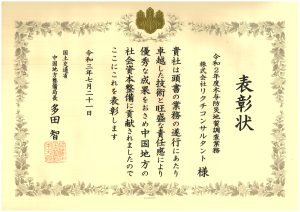 表彰状
令和2年度木与防災地質調査業務
株式会社リクチコンサルタント 様
貴社は頭書の業務の遂行にあたり
卓越した技術と旺盛な責任感により
優秀な成果をおさめ中国地方の
社会資本整備に貢献されましたので
ここにこれを表彰します
令和三年七月二十一日
国土交通省
中国地方整備局長 多田 智